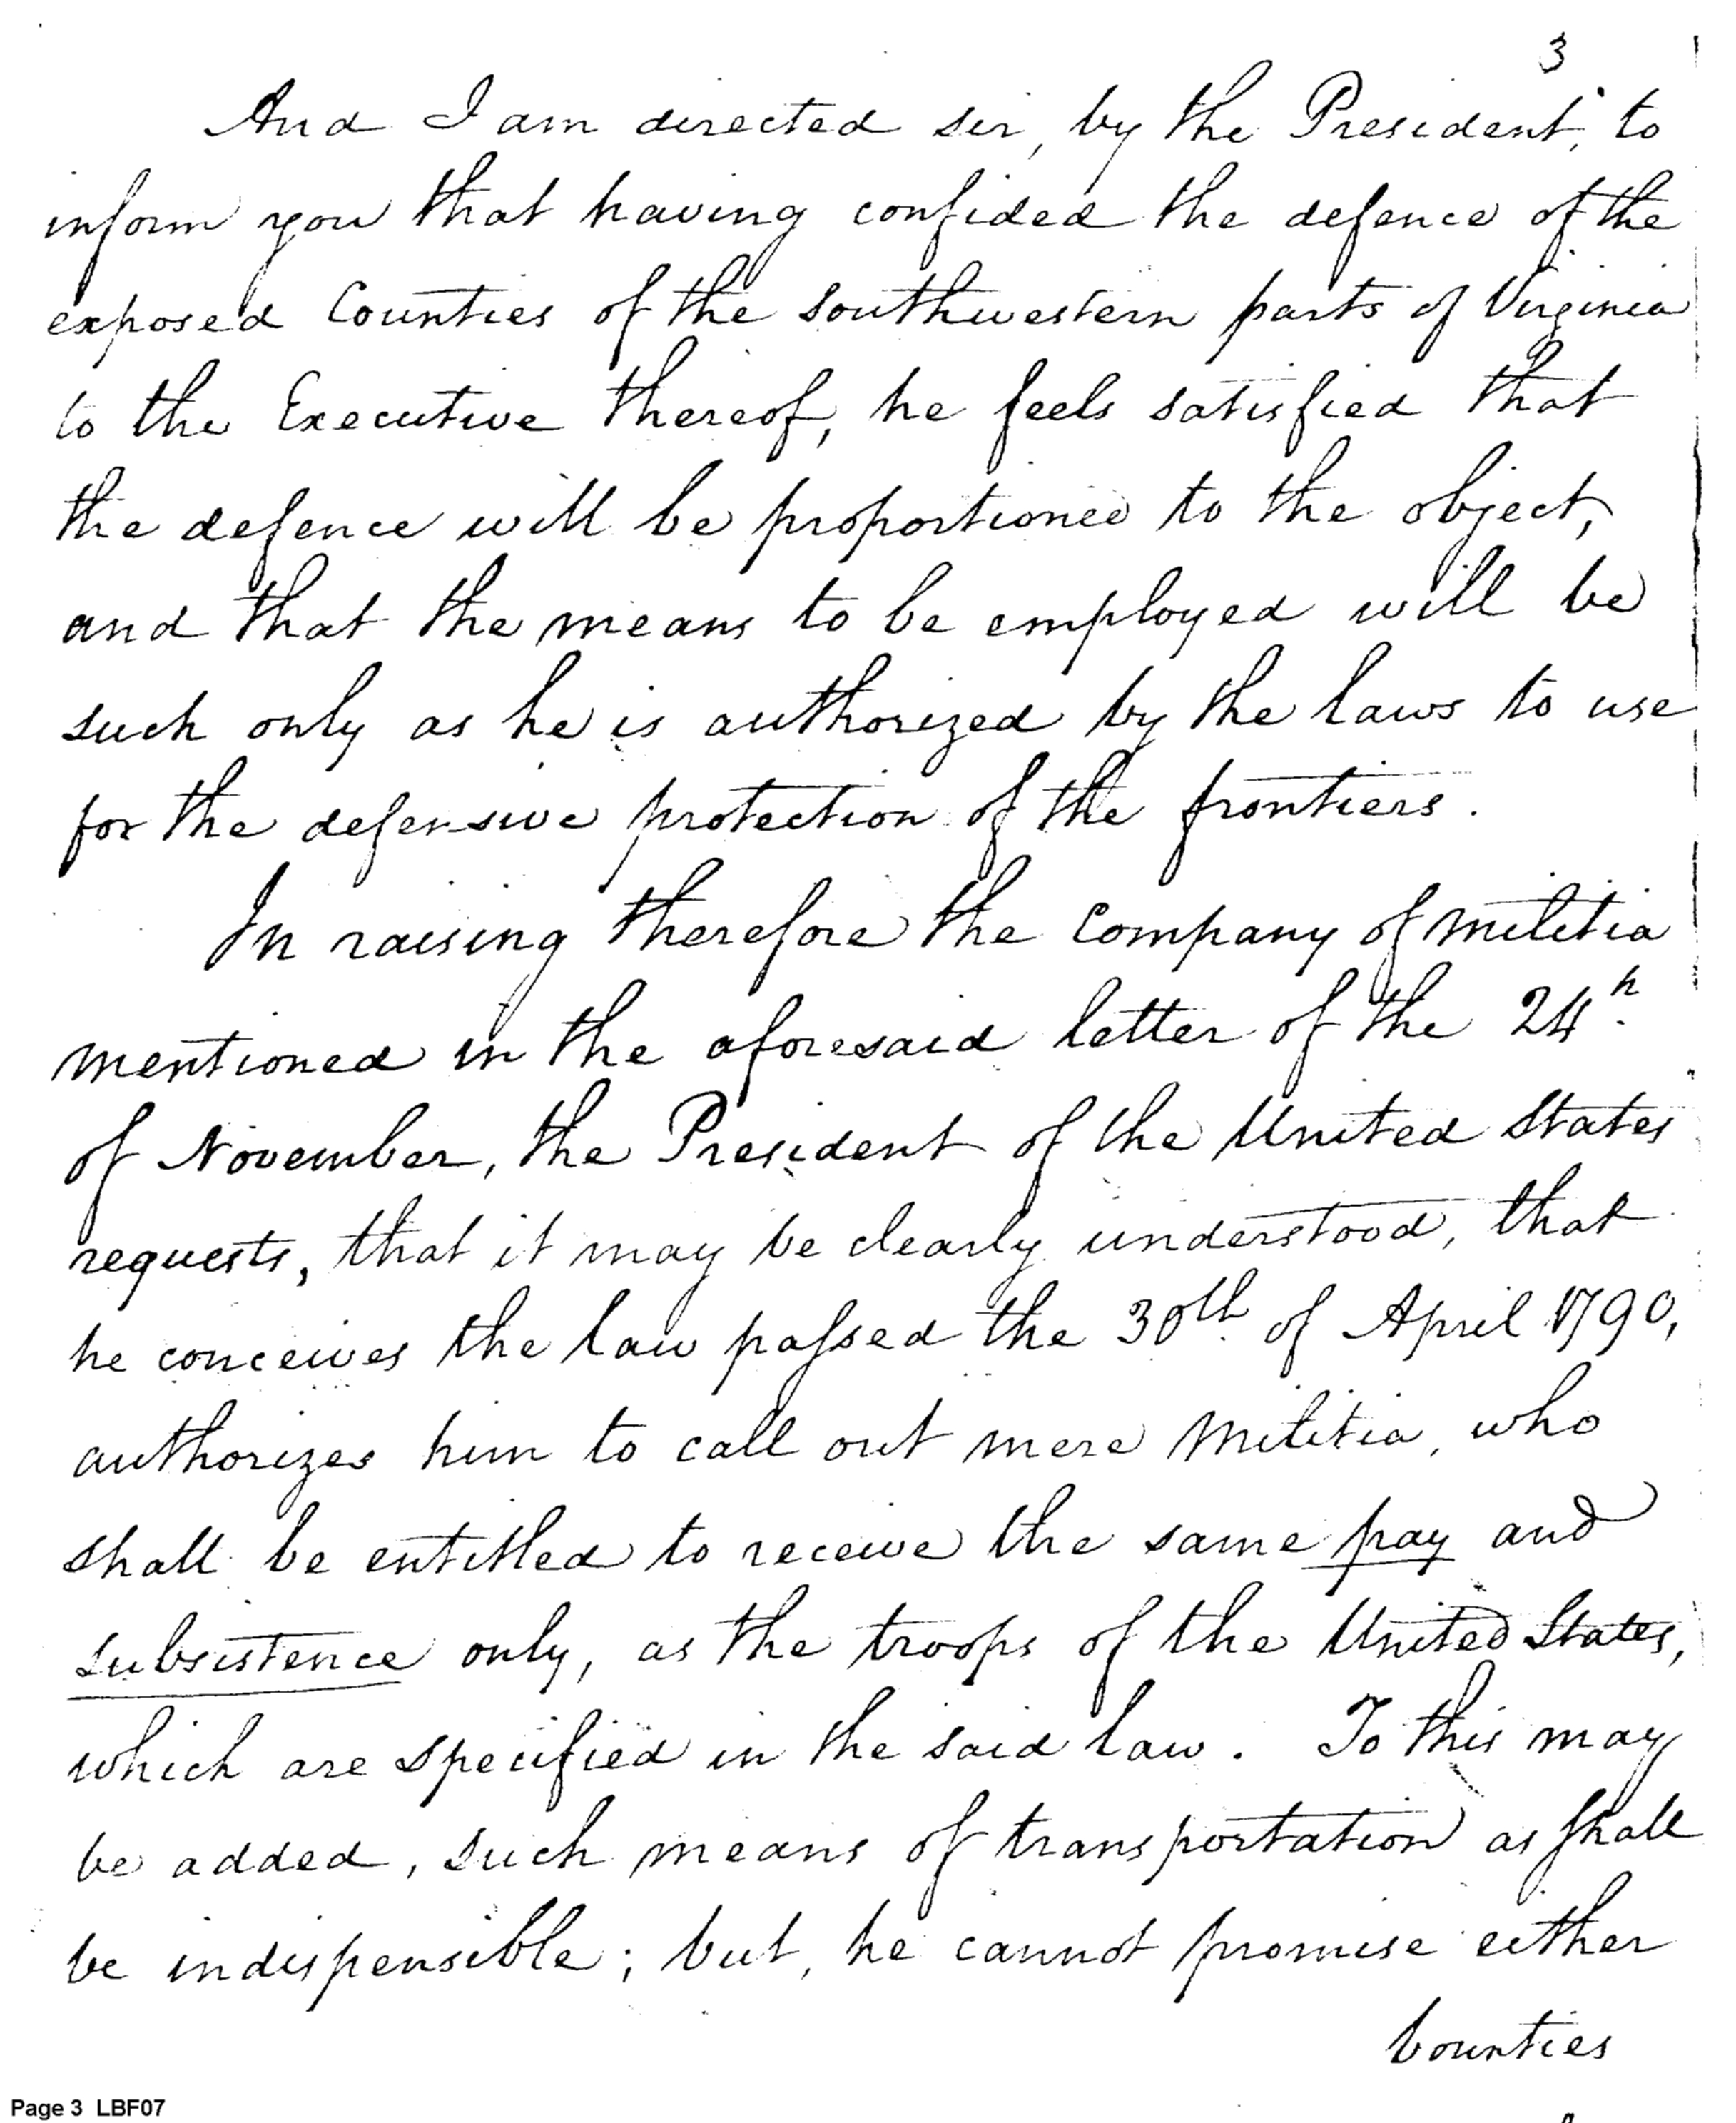 3
And I am directed sir, by the President, to
inform you that having confided the defence of the
exposed Counties of the southwestern parts of Virginia
to the Executive thereof, he feels satisfied that
the defence will be proportioned to the object,
and that the means to be employed will be
such only as he is authorized by the laws to use
for the defensive protection of the frontiers.
In raising therefore the Company of militia
mentioned in the aforesaid letter of the 24h.
of November, the President of the United States
requests, that it may be clearly understood, that
he conceives the law paſsed the 30th. of April 1790,
authorizes him to call out mere Militia, who
shall be entitled to receive the same pay and
subsistence only, as the troops of the United States,
which are specified in the said law. To this may
be added, such means of transportation as ſhall
be indispensible; but, he cannot promise either
bounties
Page 3 LBF07